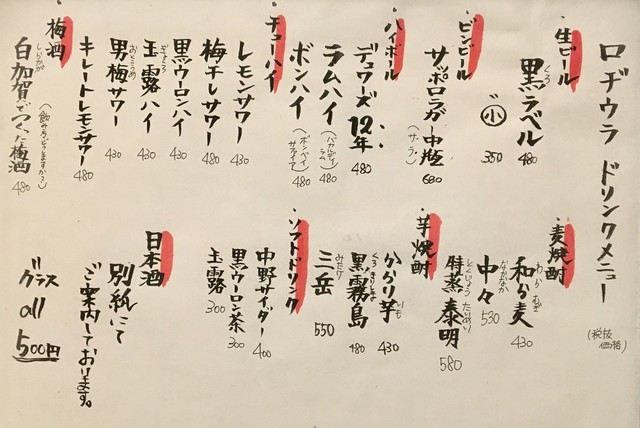 ロヂウラ ドリンクメニュー
(税抜価格)
・生ビール
黒ラベル 480
くろ
〃 小 350
・ビンビール
サッポロラガー中瓶 680
・ハイボール
デュワーズ12年 480
ラムハイ 480
ボンハイ 480
・チューハイ
レモンサワー 430
梅チレサワー 480
黒ウーロンハイ 430
玉露ハイ 430
ぎょくろ
男梅サワー 430
おとこうめ
キレートレモンサワー 480
・梅酒
白加賀でつくった梅酒 480
しらかが
・麦焼酎
和ら麦 430
わら むぎ
中々 530
なかなか
特蒸泰明 580
とくじょう たいめい
・芋焼酎
からり芋 430
いも
黒霧島 480
くろきりしま
三岳 550
みたけ
・ソフトドリンク
中野サイダー 400
黒ウーロン茶 300
玉露 300
・日本酒
別紙にて
ご案内しております。
グラス
all
500円